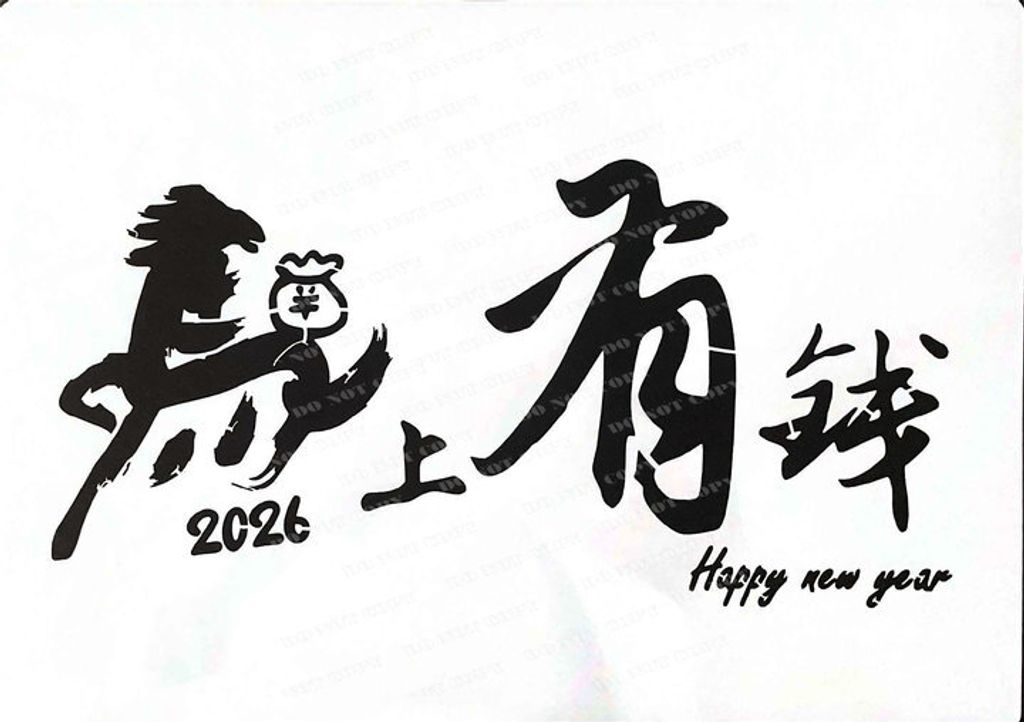 馬上有钱
¥
2026
Happy new year
DO NOT COPY